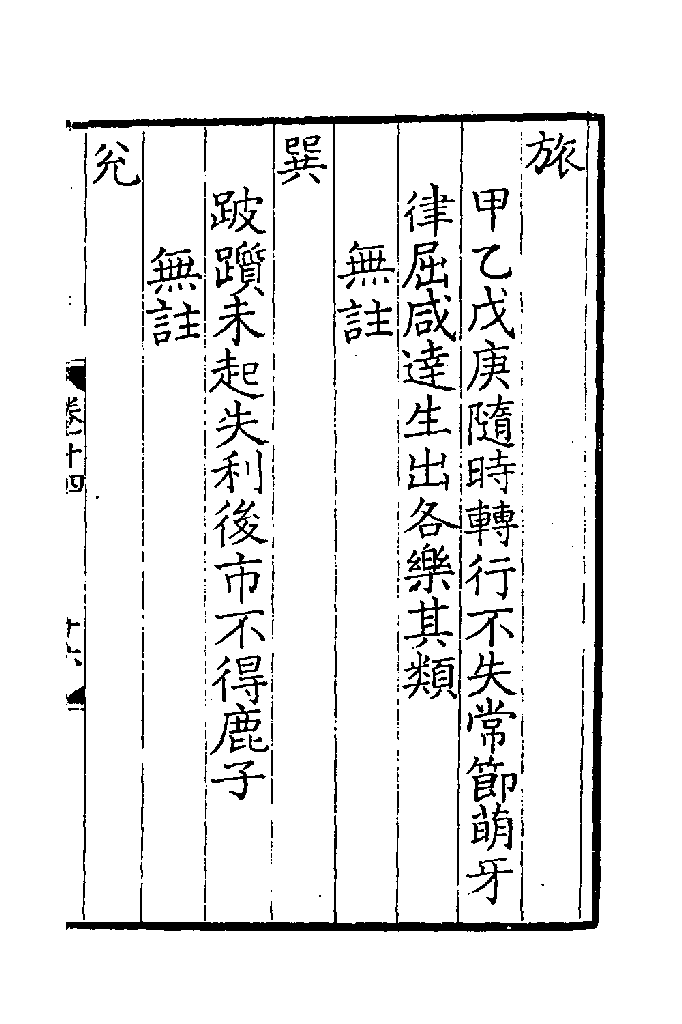 旅
甲乙戊庚隨時轉行不失常節萌牙
律屈咸達生出各樂其類
無註
巽
跛躓未起失利後市不得鹿子
無註
兊
卷十四
十六